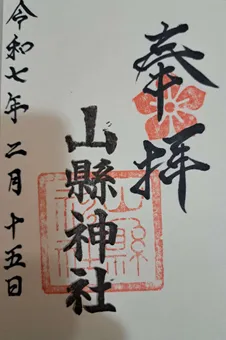 奉拝
山縣神社
令和七年二月十五日